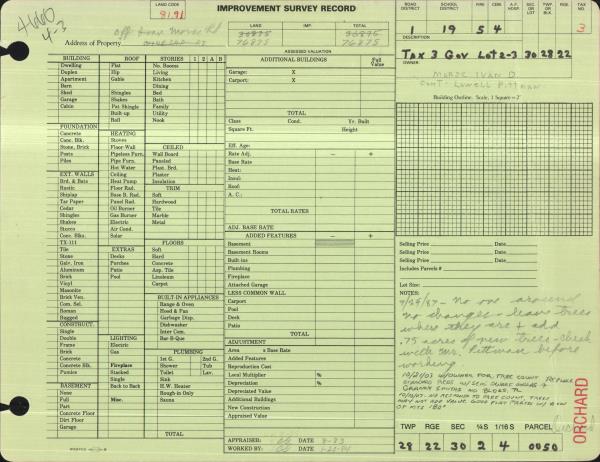 LAND CODE
8191
IMPROVEMENT SURVEY RECORD
LAND IMP. TOTAL
36875 36875
76875 76875
Address of Property
ASSESSED VALUATION
ROAD DISTRICT SCHOOL DISTRICT FIRE CEM. A.P. HOSP. SEC OR LOT TWP OR BLK RGE TAX NO
19 5 4 3
DESCRIPTION
TAX 3 GOV LOT 2-3 30.28.22
OWNER
MORSE IVAN D.
CONT: LOWELL PITTMAN
Building Outline: Scale, 1 Square = 2'
BUILDING ROOF STORIES 1 2 A B
Dwelling Flat No. Rooms
Duplex Hip Living
Apartment Gable Kitchen
Barn Dining
Shed Shingles Bed
Garage Shakes Bath
Cabin Pat Shingle Family
Built-up Utility
Roll Nook
FOUNDATION
Concrete HEATING
Conc. Blk. Stoves
Stone, Brick Floor-Wall CEILED
Posts Pipeless Furn. Wall Board
Piles Pipe Furn. Paneled
Hot Water Plast. Brd.
EXT. WALLS Ceiling Plaster
Brd. & Bats Heat Pump Insulation
Rustic Floor Rad. TRIM
Shiplap Base B. Rad. Soft
Tar Paper Panel Rad. Hardwood
Cedar Oil Burner Tile
Shingles Gas Burner Marble
Shakes Electric Metal
Stucco Air Cond.
Conc. Blks. Solar FLOORS
TX-111 Soft
Tile EXTRAS Hard
Stone Decks Concrete
Galv. Iron Porches Asp. Tile
Aluminum Patio Linoleum
Brick Pool Carpet
Vinyl
Masonite
Brick Ven. BUILT-IN APPLIANCES
Com. Sel. Range & Oven
Roman Hood & Fan
Rugged Garbage Disp.
CONSTRUCT. Dishwasher
Single Inter Com.
Double LIGHTING Bar-B-Que
Frame Electric
Brick Gas PLUMBING
Concrete 1st G. 2nd G.
Concrete Blk. Fireplace Shower Tub
Pumice Stacked Toilet Lav.
Single Sink
BASEMENT Back to Back H.W. Heater
None Rough-in Only
Full Misc. Sauna
Part
Concrete Floor
Dirt Floor
Garage
TOTAL
ADDITIONAL BUILDINGS Full Value
Garage: X
Carport: X
TOTAL
Class Cond. Yr. Built
Square Ft. Height
Eff. Age:
Rate Adj. − +
Base Rate
Heat:
Insul:
Roof:
A. C.:
TOTAL RATES
ADJ. BASE RATE
ADDED FEATURES − +
Basement
Basement Rooms
Built-ins
Plumbing
Fireplace
Attached Garage
LESS COMMON WALL
Carport
Pool
Deck
Patio
TOTAL
ADJUSTMENT
Area x Base Rate
Added Features
Reproduction Cost
Local Multiplier %
Depreciation %
Depreciated Value
Additional Buildings
New Construction
Appraised Value
APPRAISED: DATE 8-83
WORKED BY: DATE
Selling Price Date
Selling Price Date
Selling Price Date
Includes Parcels #
Lot Size:
NOTES:
- No one around
no changes - leave trees
where they are & add
.75 acres of new trees - check
with Mr. Pittman before
working
ORCHARD
TWP RGE SEC ¼S 1/16 S PARCEL
28 22 30 2 4 0050